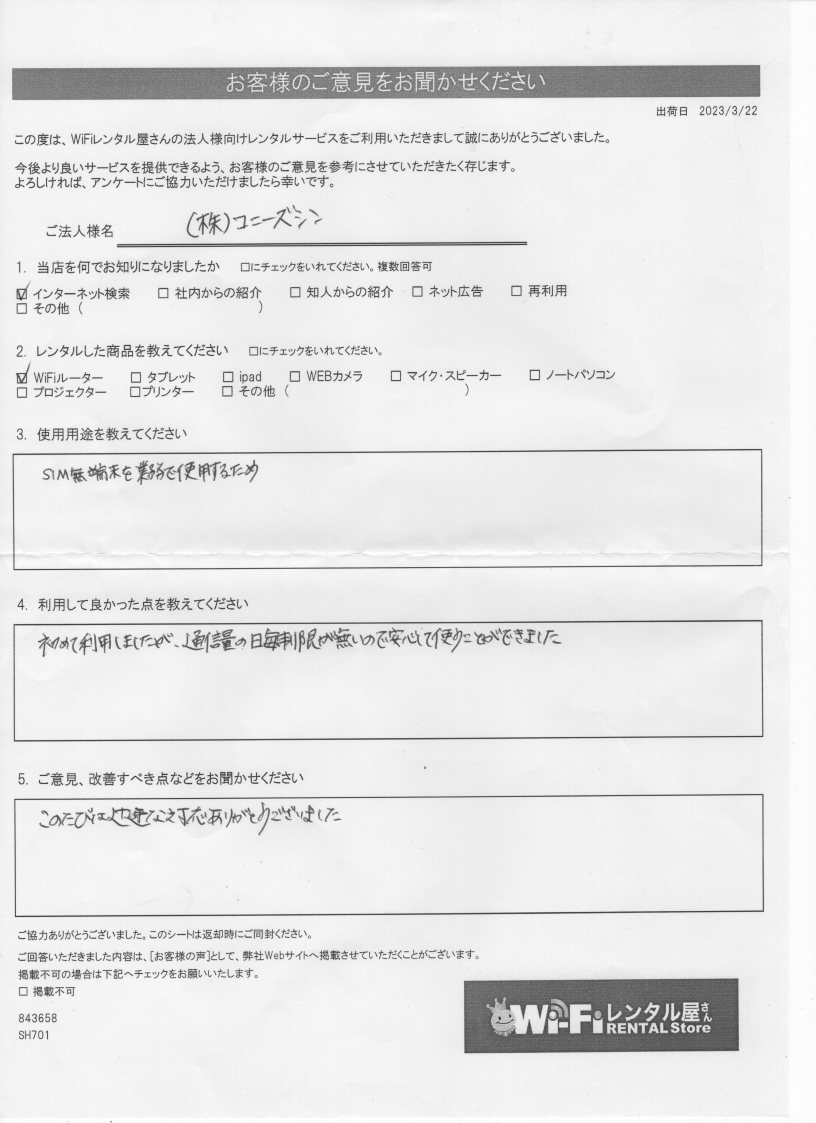 お客様のご意見をお聞かせください
出荷日 2023/3/22
この度は、WiFiレンタル屋さんの法人様向けレンタルサービスをご利用いただきまして誠にありがとうございました。
今後より良いサービスを提供できるよう、お客様のご意見を参考にさせていただきたく存じます。
よろしければ、アンケートにご協力いただけましたら幸いです。
ご法人様名 (株)コニーズシン
1. 当店を何でお知りになりましたか □にチェックをいれてください。複数回答可
☑ インターネット検索 □ 社内からの紹介 □ 知人からの紹介 □ ネット広告 □ 再利用
□ その他 ( )
2. レンタルした商品を教えてください □にチェックをいれてください。
☑ WiFiルーター □ タブレット □ ipad □ WEBカメラ □ マイク・スピーカー □ ノートパソコン
□ プロジェクター □プリンター □ その他 ( )
3. 使用用途を教えてください
SIM無端末を業務で使用するため
4. 利用して良かった点を教えてください
初めて利用しましたが、通信量の日毎制限が無いので安心して使うことができました
5. ご意見、改善すべき点などをお聞かせください
このたびは迅速な対応ありがとうございました
ご協力ありがとうございました。このシートは返却時にご同封ください。
ご回答いただきました内容は、[お客様の声]として、弊社Webサイトへ掲載させていただくことがございます。
掲載不可の場合は下記へチェックをお願いいたします。
□ 掲載不可
843658
SH701
Wi-Fiレンタル屋さん
RENTAL Store